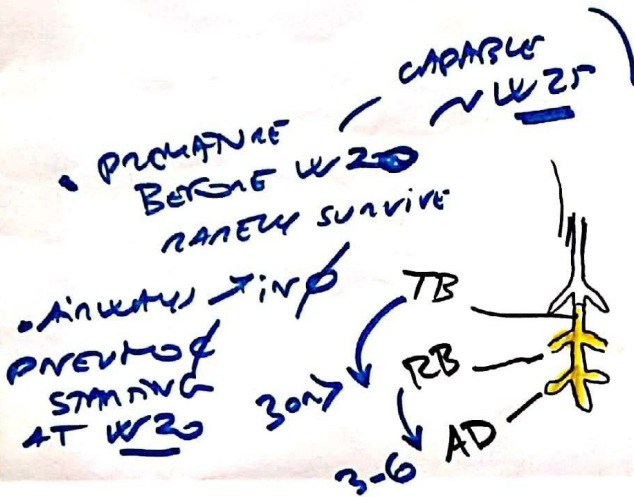 CAPABLE
~ W25
• PREMATURE
BEFORE W20
RARELY SURVIVE
• AIRWAYS ↗ in ∅
PNEUMO¢
STARTING
AT W20
TB
3 or >
RB
3-6
AD